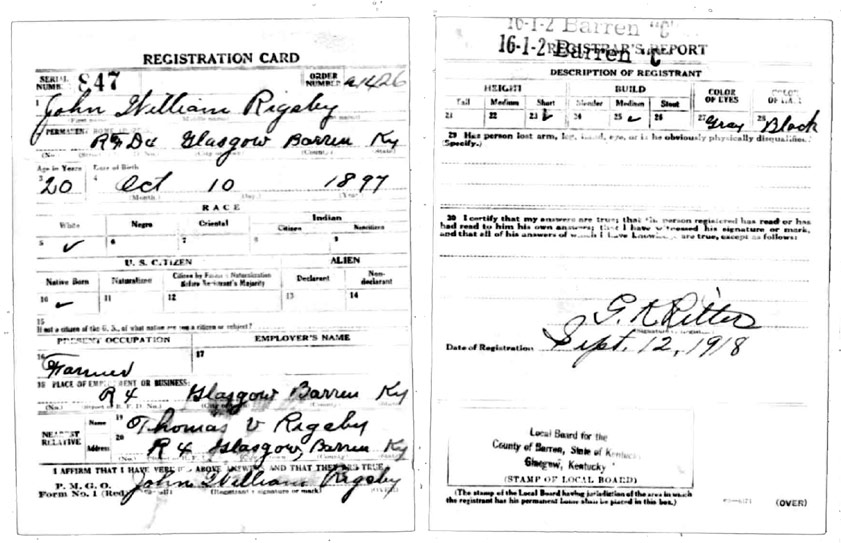 REGISTRATION CARD
SERIAL NUMBER 847 ORDER NUMBER
1 John William Rigsby
PERMANENT HOME
R F D 4 Glasgow Barren Ky
(No.) (County) (State)
Age in Years Date of Birth
3 20 4 Oct 10 1897
(Month) (Day) (Year)
RACE
White Negro Oriental Indian
Citizen Noncitizen
5 ✓ 6 7 8 9
U. S. CITIZEN ALIEN
Native Born Naturalized Citizen by Father's Naturalization Before Registrant's Majority Declarant Non-declarant
10 ✓ 11 12 13 14
15
If not a citizen of the U. S., of what nation are you a citizen or subject?
PRESENT OCCUPATION EMPLOYER'S NAME
16 Farmer 17
18 PLACE OF EMPLOYMENT OR BUSINESS:
R 4 Glasgow Barren Ky
(No.)
NEAREST RELATIVE Name 19 Thomas V Rigsby
Address 20 R 4 Glasgow, Barren Ky
I AFFIRM THAT I HAVE VERIFIED ABOVE ANSWERS AND THAT THEY ARE TRUE
P. M. G. O.
Form No. 1 (Red) John William Rigsby
(Registrant's signature or mark) (OVER)
16-1-2 Barren "C"
16-1-2 Barren "C"
REGISTRAR'S REPORT
DESCRIPTION OF REGISTRANT
HEIGHT BUILD COLOR OF EYES COLOR OF HAIR
Tall Medium Short Slender Medium Stout
21 22 23 ✓ 24 25 ✓ 26 27 Gray 28 Black
29 Has person lost arm, leg, hand, eye, or is he obviously physically disqualified?
(Specify.)
30 I certify that my answers are true; that the person registered has read or has
had read to him his own answers; that I have witnessed his signature or mark,
and that all of his answers of which I have knowledge are true, except as follows:
G. R. Ritter
Date of Registration Sept. 12, 1918
Local Board for the
County of Barren, State of Kentucky
Glasgow, Kentucky
(STAMP OF LOCAL BOARD)
(The stamp of the Local Board having jurisdiction of the area in which
the registrant has his permanent home shall be placed in this box.)
(OVER)